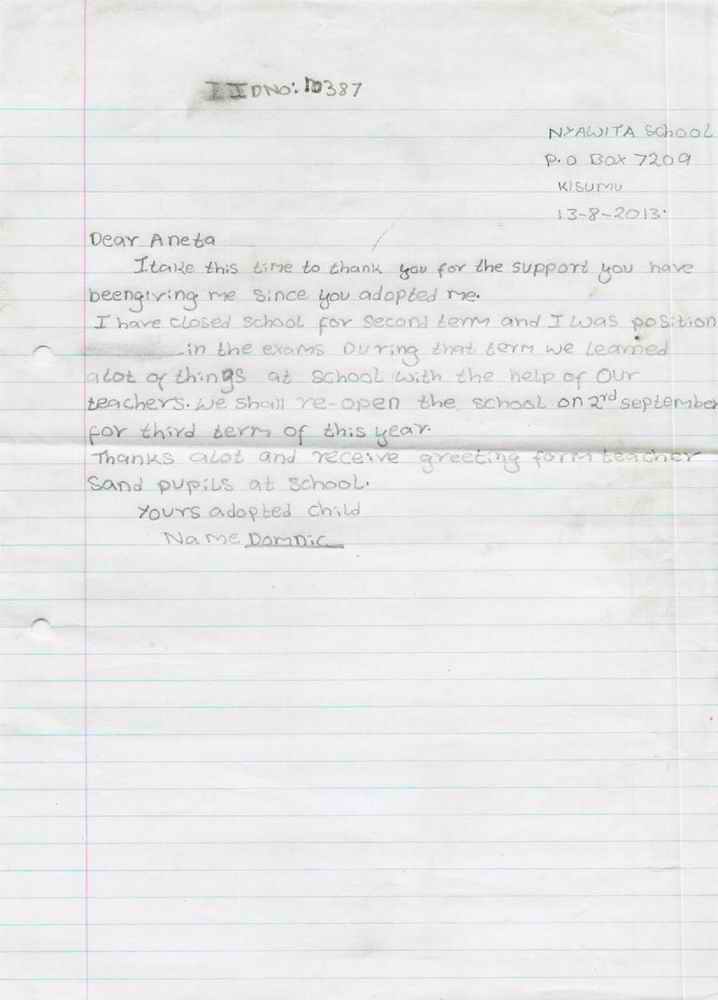 IDNO: 10387
NYAWITA SCHOOL
P.O BOX 7209
KISUMU
13-8-2013.
Dear Aneta
I take this time to thank you for the support you have
beengiving me since you adopted me.
I have closed school for second term and I was position
in the exams During that term we learned
alot of things at school with the help of our
teachers. We shall re-open the school on 2rd september
for third term of this year.
Thanks alot and receive greeting form teacher
Sand pupils at school.
Yours adopted child
Name Domnic